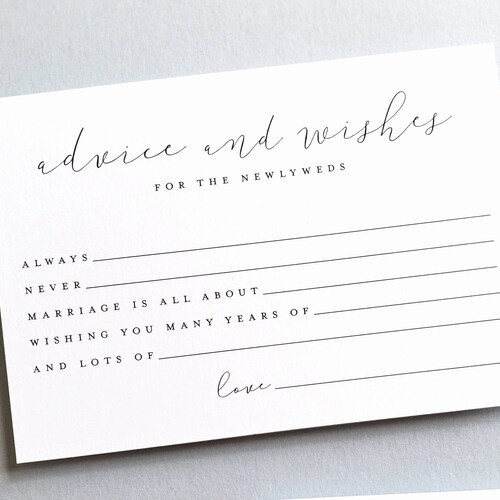 advice and wishes
FOR THE NEWLYWEDS
ALWAYS
NEVER
MARRIAGE IS ALL ABOUT
WISHING YOU MANY YEARS OF
AND LOTS OF
love